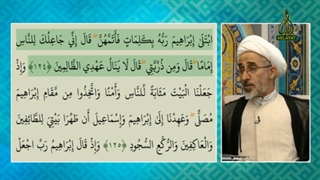 VELAYAT
ابْتَلَىٰ إِبْرَاهِيمَ رَبُّهُ بِكَلِمَاتٍ فَأَتَمَّهُنَّ ۖ قَالَ إِنِّي جَاعِلُكَ لِلنَّاسِ
إِمَامًا ۖ قَالَ وَمِن ذُرِّيَّتِي ۖ قَالَ لَا يَنَالُ عَهْدِي الظَّالِمِينَ ﴿١٢٤﴾ وَإِذْ
جَعَلْنَا الْبَيْتَ مَثَابَةً لِّلنَّاسِ وَأَمْنًا وَاتَّخِذُوا مِن مَّقَامِ إِبْرَاهِيمَ
مُصَلًّى ۖ وَعَهِدْنَا إِلَىٰ إِبْرَاهِيمَ وَإِسْمَاعِيلَ أَن طَهِّرَا بَيْتِيَ لِلطَّائِفِينَ
وَالْعَاكِفِينَ وَالرُّكَّعِ السُّجُودِ ﴿١٢٥﴾ وَإِذْ قَالَ إِبْرَاهِيمُ رَبِّ اجْعَلْ